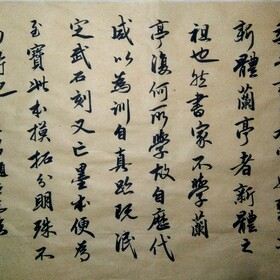 新體蘭亭者新體之
祖也然書家不學蘭
亭復何所學故自歷代
咸以為訓自真跡既泯
定武石刻又亡墨本便為
至寶此本摸拓分明珠不